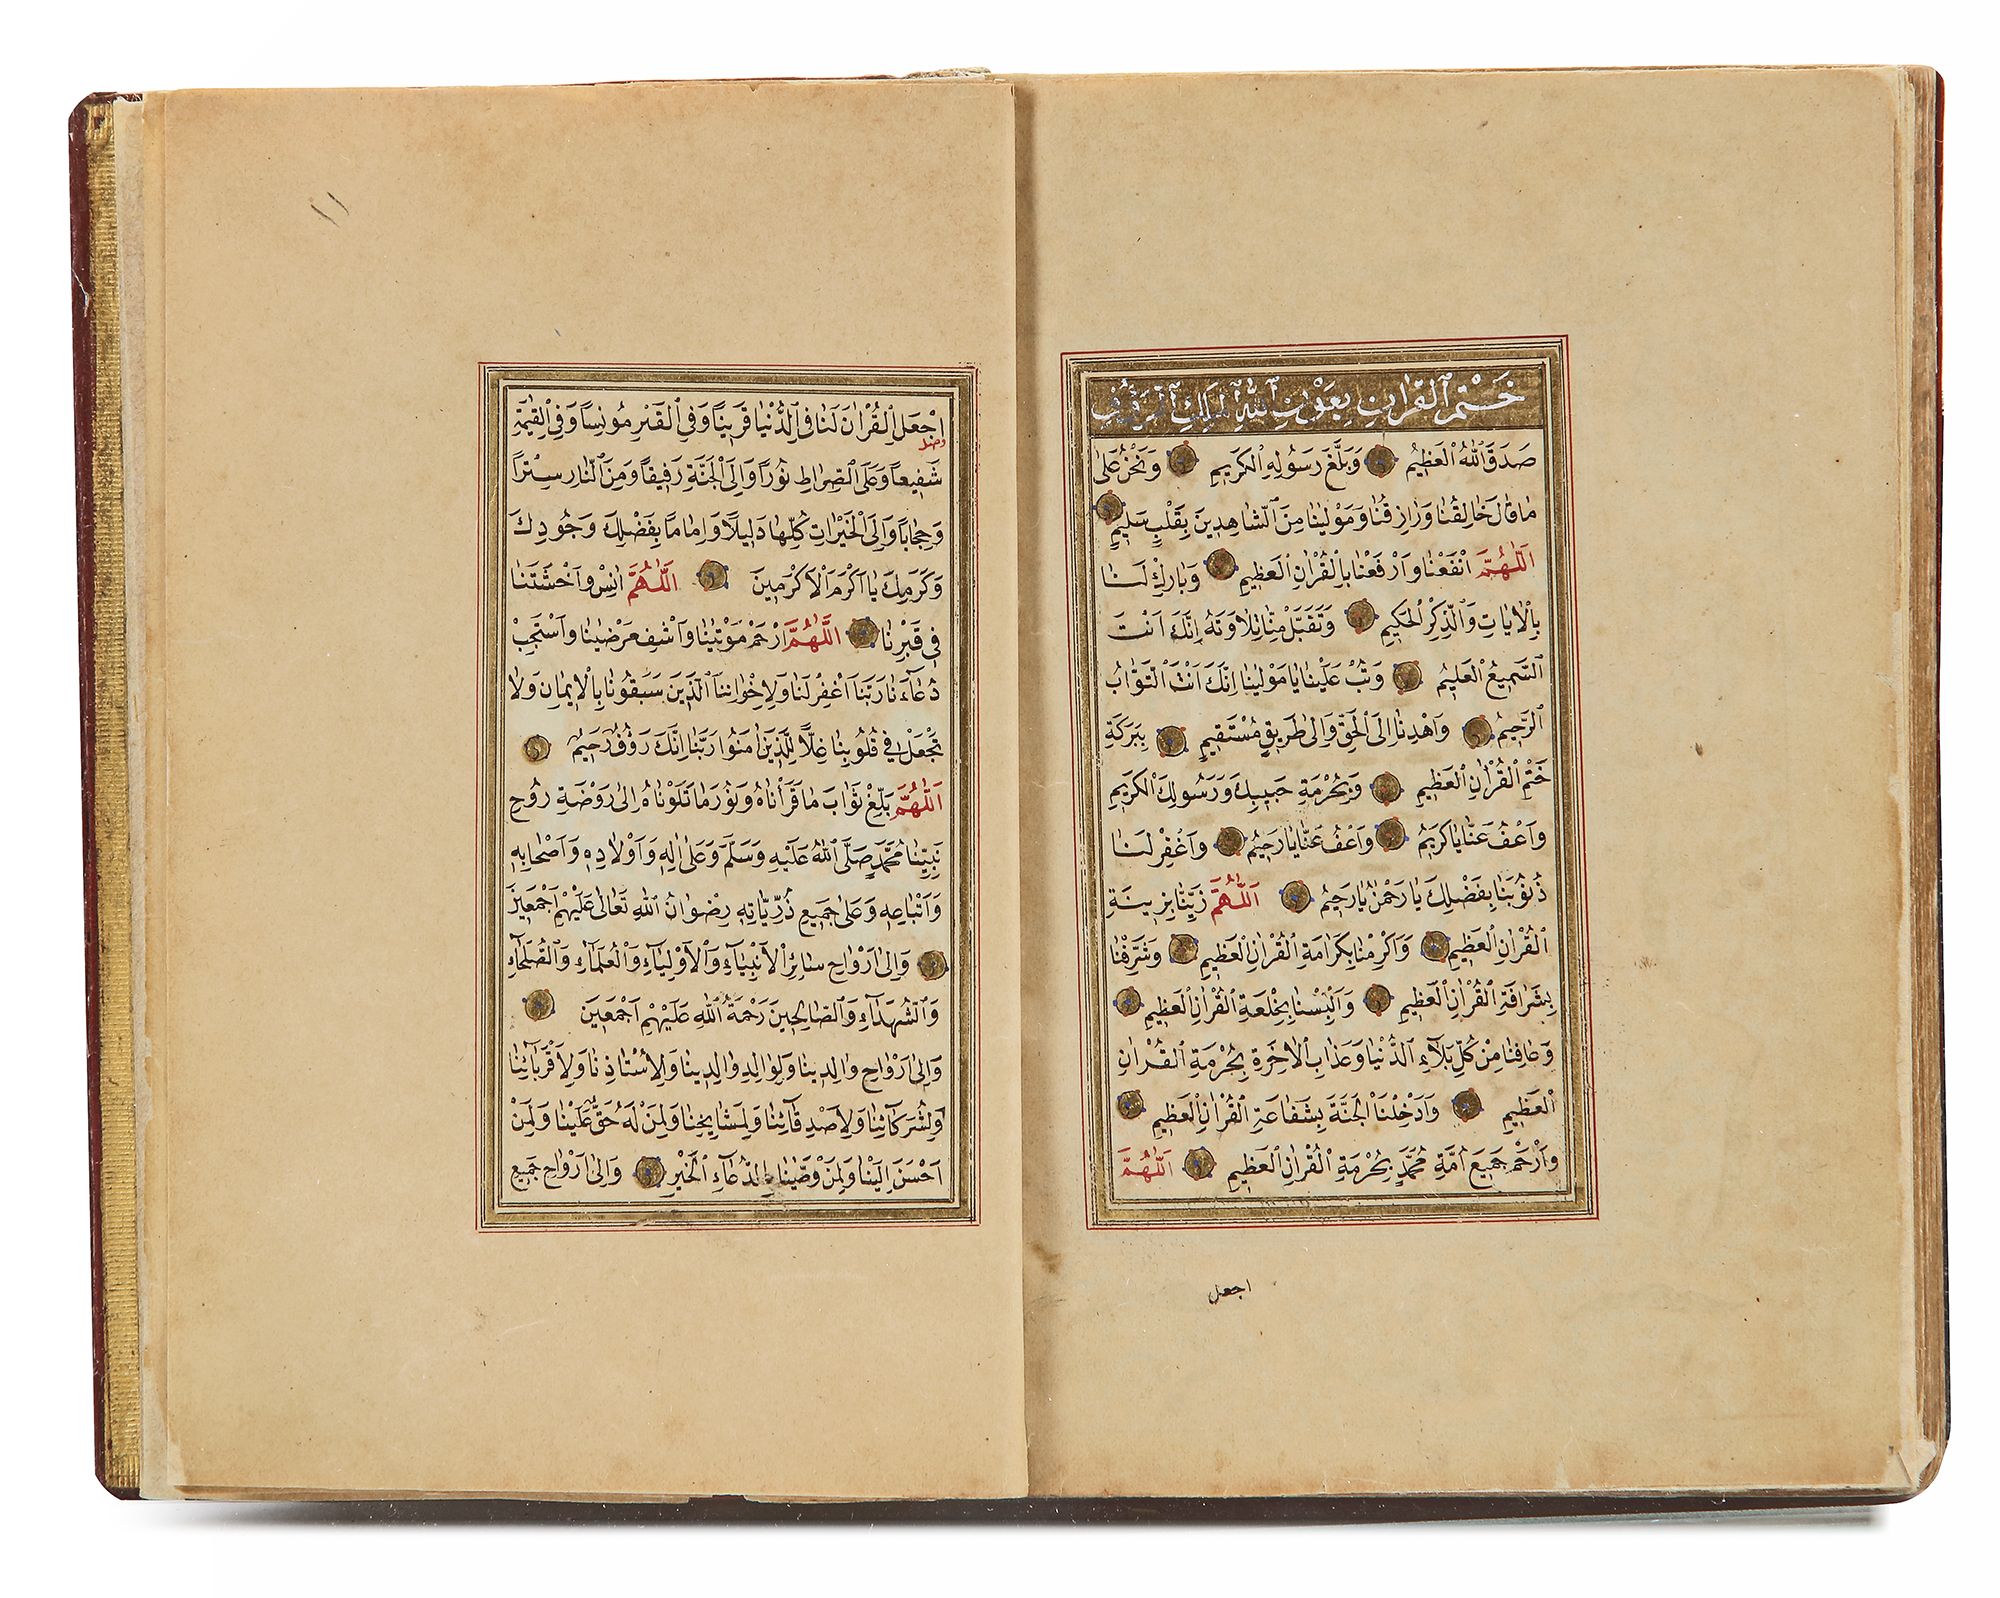 ختم القرآن بعون الله الملك
صَدَقَ اللّٰهُ الْعَظِيمُ وَبَلَّغَ رَسُولِهِ الْكَرِيمِ وَنَحْنُ عَلٰى
مَا قَالَ خَالِقُنَا وَرَازِقُنَا وَمَوْلٰينَا مِنَ الشَّاهِدِينَ بِقَلْبٍ سَلِيمٍ
اَللّٰهُمَّ انْفَعْنَا وَارْفَعْنَا بِالْقُرْاٰنِ الْعَظِيمِ وَبَارِكْ لَنَا
بِالْاٰيَاتِ وَالذِّكْرِ الْحَكِيمِ وَتَقَبَّلْ مِنَّا تِلَاوَتَهُ اِنَّكَ اَنْتَ
السَّمِيعُ الْعَلِيمُ وَتُبْ عَلَيْنَا يَا مَوْلٰينَا اِنَّكَ اَنْتَ التَّوَّابُ
الرَّحِيمُ وَاهْدِنَا اِلَى الْحَقِّ وَاِلٰى طَرِيقٍ مُسْتَقِيمٍ بِبَرَكَةِ
خَتْمِ الْقُرْاٰنِ الْعَظِيمِ وَبِحُرْمَةِ حَبِيبِكَ وَرَسُولِكَ الْكَرِيمِ
وَاعْفُ عَنَّا يَا كَرِيمُ وَاعْفُ عَنَّا يَا رَحِيمُ وَاغْفِرْ لَنَا
ذُنُوبَنَا بِفَضْلِكَ يَا رَحْمٰنُ يَا رَحِيمُ اَللّٰهُمَّ زَيِّنَّا بِزِينَةِ
الْقُرْاٰنِ الْعَظِيمِ وَاَكْرِمْنَا بِكَرَامَةِ الْقُرْاٰنِ الْعَظِيمِ وَشَرِّفْنَا
بِشَرَافَةِ الْقُرْاٰنِ الْعَظِيمِ وَاَلْبِسْنَا بِخِلْعَةِ الْقُرْاٰنِ الْعَظِيمِ
وَعَافِنَا مِنْ كُلِّ بَلَاۤءِ الدُّنْيَا وَعَذَابِ الْاٰخِرَةِ بِحُرْمَةِ الْقُرْاٰنِ
الْعَظِيمِ وَاَدْخِلْنَا الْجَنَّةَ بِشَفَاعَةِ الْقُرْاٰنِ الْعَظِيمِ
وَارْحَمْ جَمِيعَ اُمَّةِ مُحَمَّدٍ بِحُرْمَةِ الْقُرْاٰنِ الْعَظِيمِ اَللّٰهُمَّ
اجعل
١١
اجْعَلِ الْقُرْاٰنَ لَنَا فِي الدُّنْيَا قَرِينًا وَفِي الْقَبْرِ مُونِسًا وَفِي الْقِيٰمَةِ
شَفِيعًا وَعَلَى الصِّرَاطِ نُورًا وَاِلَى الْجَنَّةِ رَفِيقًا وَمِنَ النَّارِ سِتْرًا
وَحِجَابًا وَاِلَى الْخَيْرَاتِ كُلِّهَا دَلِيلًا وَاِمَامًا بِفَضْلِكَ وَجُودِكَ
وَكَرَمِكَ يَا اَكْرَمَ الْاَكْرَمِينَ اَللّٰهُمَّ اٰنِسْ وَاحْشَتَنَا
فِي قَبْرِنَا اَللّٰهُمَّ ارْحَمْ مَوْتٰينَا وَاشْفِ مَرْضٰينَا وَاسْتَجِبْ
دُعَاۤءَنَا رَبَّنَا اغْفِرْ لَنَا وَلِاِخْوَانِنَا الَّذِينَ سَبَقُونَا بِالْاِيمَانِ وَلَا
تَجْعَلْ فِي قُلُوبِنَا غِلًّا لِلَّذِينَ اٰمَنُوا رَبَّنَا اِنَّكَ رَؤُفٌ رَحِيمٌ
اَللّٰهُمَّ بَلِّغْ ثَوَابَ مَا قَرَأْنَاهُ وَنُورَ مَا تَلَوْنَاهُ اِلٰى رَوْضَةِ رُوحِ
نَبِيِّنَا مُحَمَّدٍ صَلَّى اللّٰهُ عَلَيْهِ وَسَلَّمَ وَعَلٰى اٰلِهِ وَاَوْلَادِهِ وَاَصْحَابِهِ
وَاَتْبَاعِهِ وَعَلٰى جَمِيعِ ذُرِّيَّاتِهِ رِضْوَانُ اللّٰهِ تَعَالٰى عَلَيْهِمْ اَجْمَعِينَ
وَاِلٰى اَرْوَاحِ سَائِرِ الْاَنْبِيَاۤءِ وَالْاَوْلِيَاۤءِ وَالْعُلَمَاۤءِ وَالصُّلَحَاۤءِ
وَالشُّهَدَاۤءِ وَالصَّالِحِينَ رَحْمَةُ اللّٰهِ عَلَيْهِمْ اَجْمَعِينَ
وَاِلٰى اَرْوَاحِ وَالِدِينَا وَلِوَالِدِ وَالِدِينَا وَلِاُسْتَاذِنَا وَلِاَقْرَبَائِنَا
وَلِشُرَكَائِنَا وَلِاَصْدِقَائِنَا وَلِمَشَايِخِنَا وَلِمَنْ لَهُ حَقٌّ عَلَيْنَا وَلِمَنْ
اَحْسَنَ اِلَيْنَا وَلِمَنْ وَصّٰينَا بِالدُّعَاۤءِ الْخَيْرِ وَاِلٰى اَرْوَاحِ جَمِيعِ